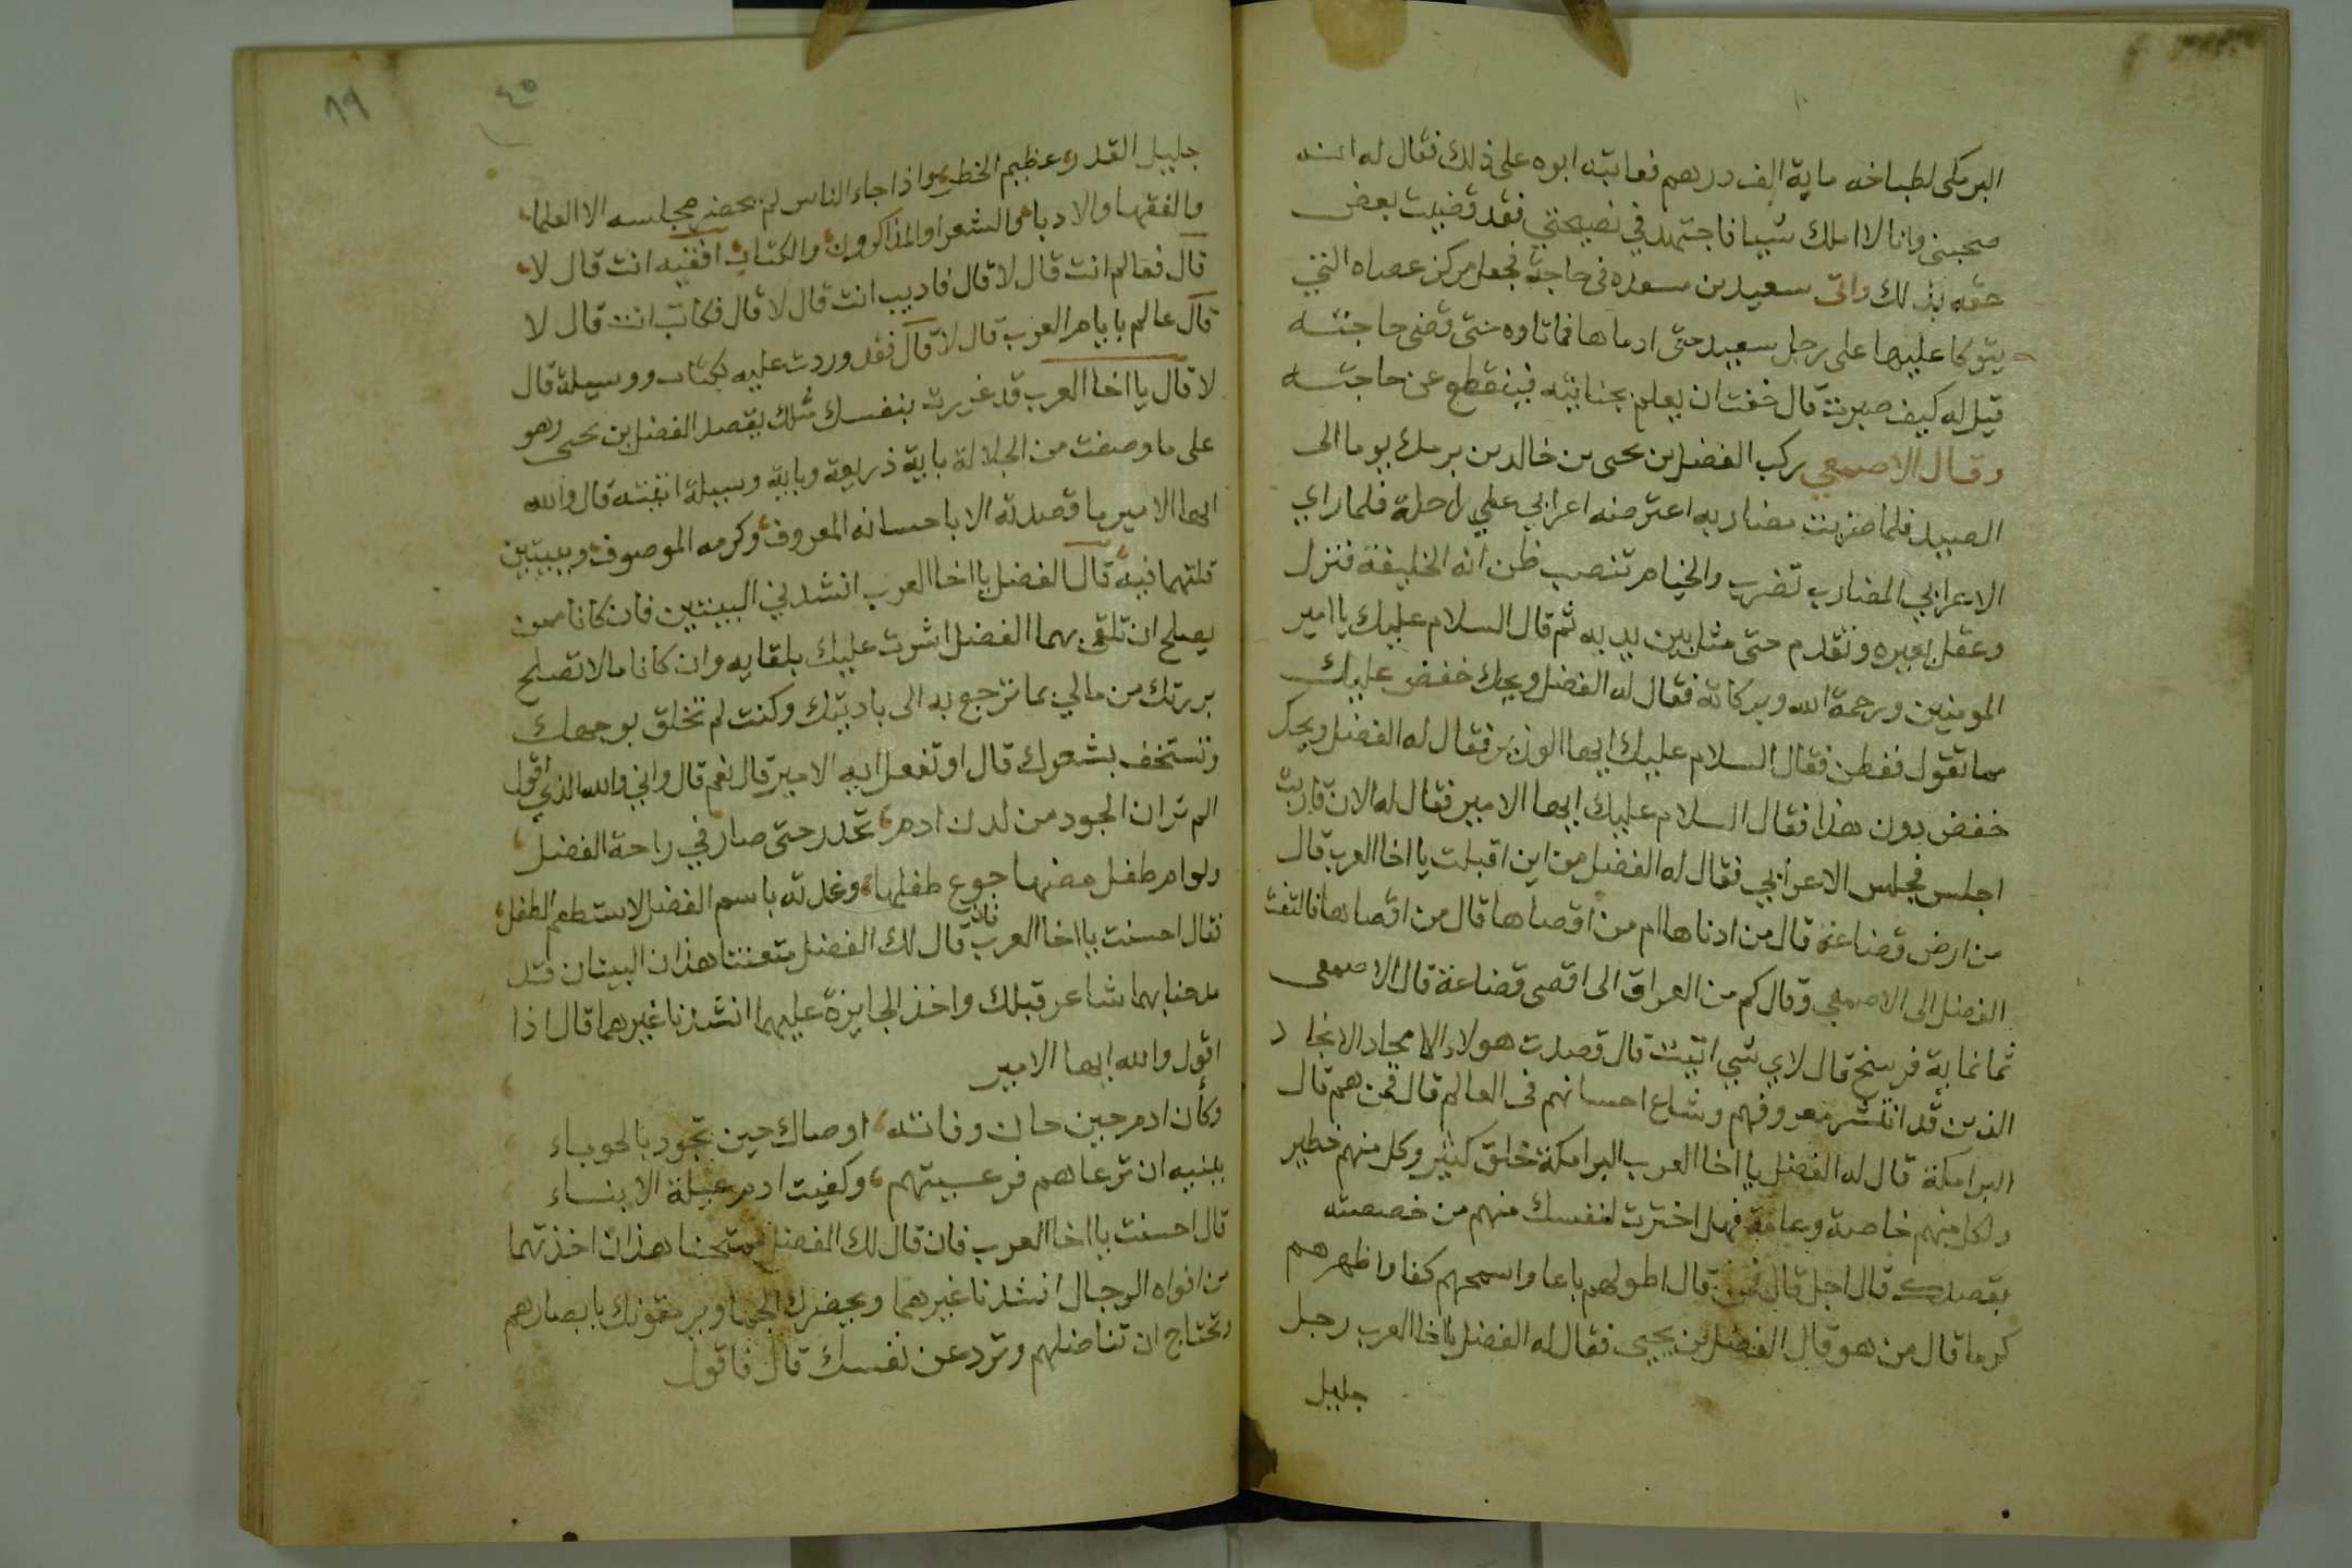 البرمكى لطباخه ماية الف درهم فعاتبه ابوه على ذلك فقال له انه
صحبنى وانا لا املك شييا فاجتهد في نصيحتي فقد قضيت بعض
حقه بذلك واتى سعيد بن مسعده فى حاجة فجعل مركز عصاه التي
يتوكا عليها على رجل سعيد حتى ادماها فما تاوه حتى قضى حاجته
قيل له كيف صبرت قال خفت ان يعلم بجنايته فينقطع عن حاجته
وقال الاصمعي ركب الفضل بن يحيى بن خالد بن برمك يوما الى
الصيد فلما ضربت مضاربه اعترضه اعرابي على راحلة فلما راي
الاعرابي المضارب تضرب والخيام تنصب ظن انه الخليفة فنزل
وعقل بعيره وتقدم حتى مثل بين يديه ثم قال السلام عليك يا امير
المومنين ورحمة الله وبركاته فقال له الفضل ويحك خفض عليك
مما تقول ففطن فقال السلام عليك ايها الوزير فقال له الفضل ويحك
خفض دون هذا فقال السلام عليك ايها الامير فقال له الان قاربت
اجلس فجلس الاعرابي فقال له الفضل من اين اقبلت يا اخا العرب قال
من ارض قضاعة قال من ادناها ام من اقصاها قال من اقصاها فالتفت
الفضل الى الاصمعي وقال كم من العراق الى اقصى قضاعة قال الاصمعى
ثمانماية فرسخ قال لاي شي اتيت قال قصدت هولاء الامجاد الانجاد
الذين قد انتشر معروفهم وشاع احسانهم فى العالم قال فمن هم قال
البرامكة قال له الفضل يا اخا العرب البرامكة خلق كثير وكل منهم خطير
ولكل منهم خاصة وعامة فهل اخترت لنفسك منهم من خصصته
بقصدك قال اجل قال فمن قال اطولهم باعا واسمحهم كفا واظهرهم
كرما قال من هو قال الفضل بن يحيى فقال له الفضل يا اخا العرب رجل
جليل
٤٥
٨٩
جليل القدر وعظيم الخطر واذا جاء الناس لم يحضر مجلسه الا العلما
والفقها والادبا والشعرا والمذاكرون والكتاب افقيه انت قال لا
قال فعالم انت قال لا قال فاديب انت قال لا قال فكاتب انت قال لا
قال عالم بايام العرب قال لا قال فقد وردت عليه بكتاب ووسيلة قال
لا قال يا اخا العرب قد غررت بنفسك مثلك يقصد الفضل بن يحيى وهو
على ما وصفت من الجلالة باية ذريعة وباية وسيلة اتيته قال والله
ايها الامير ما قصدته الا باحسانه المعروف وكرمه الموصوف وببيتين
قلتهما فيه قال الفضل يا اخا العرب انشدني البيتين فان كانا ممن
يصلح ان تلقى بهما الفضل اشرت عليك بلقايه وان كانا ما لا تصلح
بررتك من مالي بما ترجع به الى باديتك وكنت لم تخلق بوجهك
وتستخف بشعرك قال او تفعل ايه الامير قال نعم قال واني والله الذي اقول
الم تر ان الجود من لدن ادم تحدر حتى صار في راحة الفضل
ولو ام طفل مضها جوع طفلها وغدته باسم الفضل لاستطعم الطفل
فقال احسنت يا اخا العرب فان قال لك الفضل متعنتا هذان البيتان قد
مدحنا بهما شاعر قبلك واخذ الجايزة عليهما انشدنا غيرهما قال اذا
اقول والله ايها الامير
وكأن ادم حين حان وفاته اوصاك حين تجود بالحوباء
ببنيه ان ترعاهم فرعيتهم وكفيت ادم عيلة الابناء
قال احسنت يا اخا العرب فان قال لك الفضل ممتحنا هذان اخذتهما
من افواه الرجال انشدنا غيرهما وبحضرك الجما وير مقونك بابصارهم
وتحتاج ان تناضلهم وترد عن نفسك قال فاقول